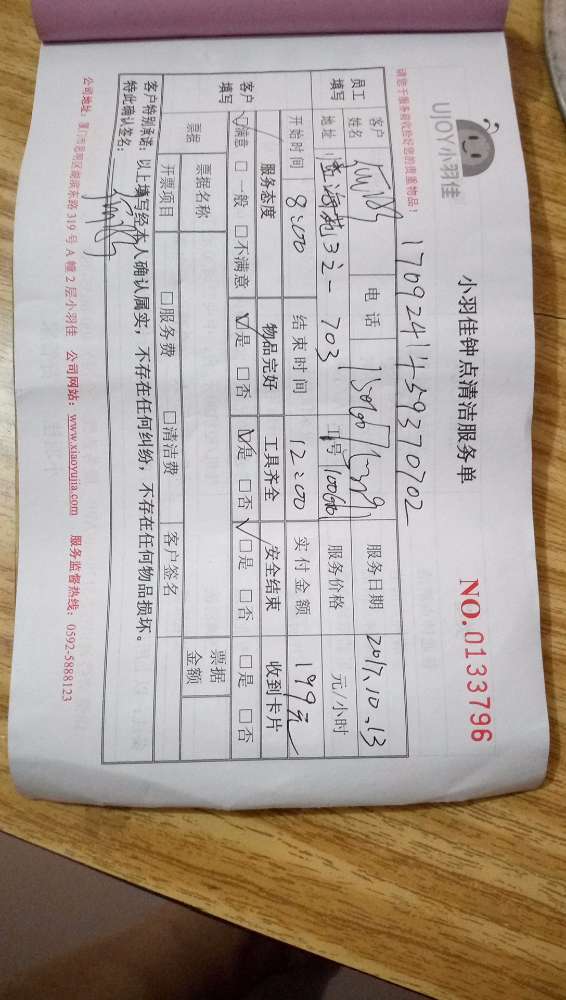 UJOY小羽佳
小羽佳钟点清洁服务单
NO.0133796
请您于服务前收拾好您的贵重物品!
17092414459370702
员工填写
客户姓名
电话
服务日期 2017.10.13
地址
703
工号
服务价格
元/小时
开始时间 8:00 结束时间 12:00 实付金额 199元
客户填写
服务态度 物品完好 工具齐全 安全结束 收到卡片
□满意 □一般 □不满意 □是 □否 □是 □否 □是 □否 □是 □否
票据
票据名称
票据金额
开票项目 □服务费 □清洁费 客户签名
客户特别承诺:以上填写经本人确认属实,不存在任何纠纷,不存在任何物品损坏。
特此确认签名:
公司地址:厦门市思明区湖滨东路 319 号 A 幢 2 层小羽佳 公司网站:www.xiaoyujia.com 服务监督热线:0592-5888123